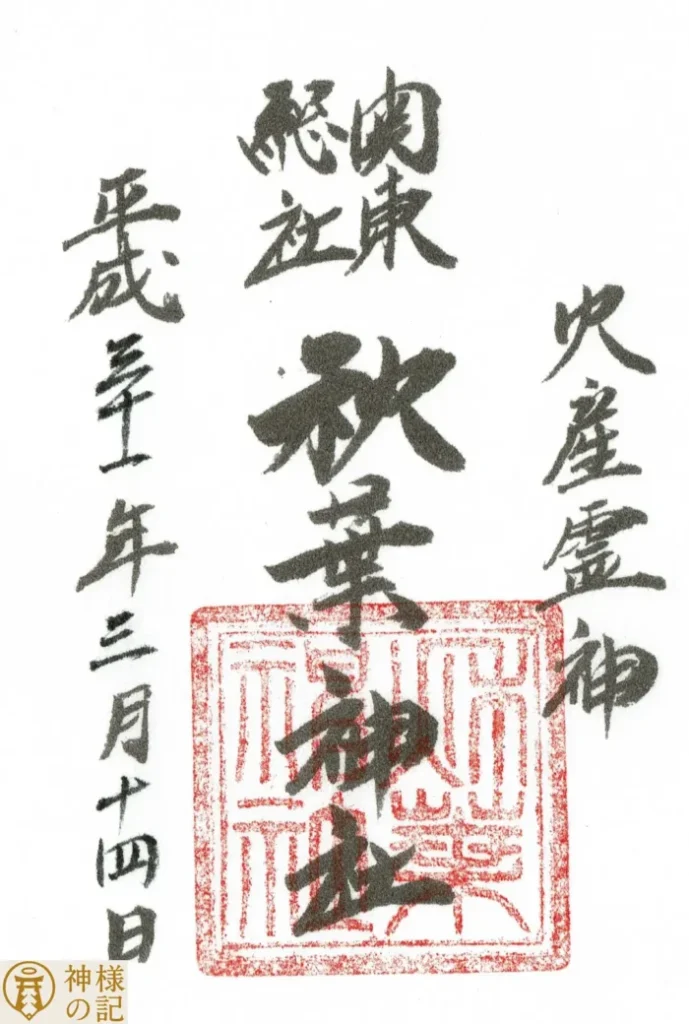 火産霊神
関東
総社
秋葉神社
平成三十一年三月十四日
秋葉
神社
神様
の記